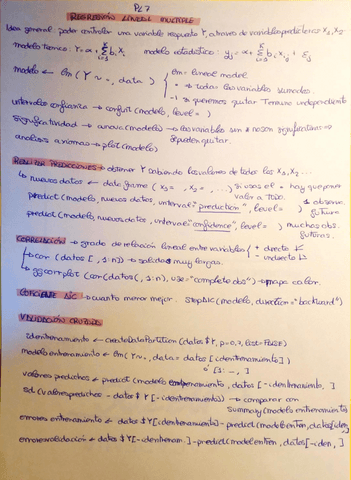 PL7
REGRESIÓN LINEAL MÚLTIPLE
Idea general poder controlar una variable respuesta Y, a traves de variables predictoras X1, X2..
modelo teórico: Y = α + Σ bi Xi modelo estadístico: yj = α + Σ bi xij + Ej
modelo ← lm (Y ~ ., data) lm = lineal model
. = todas las variables sumadas.
-1 si queremos quitar Termino independiente
intervalos confianza → confint (modelo, level = )
significatividad → anova (modelo) → las variables sin * no son significativas →
se pueden quitar.
analisis axiomas → plot (modelo)
REALIZAR PREDICCIONES → obtener Y sabiendo los valores de todos los X1, X2 ...
↳ nuevos datos ← data.frame ( X1 = , X2 = , ... ) Si usas el . hay que poner
valor a todo.
predict (modelo, nuevos datos, interval = "prediction", level = ) 1 observa.
futura
predict (modelo, nuevos datos, interval = "confidence", level = ) muchas obs.
futuras.
CORRELACIÓN → grado de relación lineal entre variables + directa
- indirecta
↳ cor (datos [ , 1:n]) → salidas muy largas.
↳ ggcorrplot (cor (datos [ , 1:n], use = "complete.obs") → mapa calor.
COEFICIENTE AIC → cuanto menor mejor. StepAIC (modelo, direction = "backward")
VALIDACIÓN CRUZADA
identrenamiento ← createDataPartition (datos $ Y, p=0.7, list=FALSE)
modelo entrenamiento ← lm (Y ~ ., data = datos [identrenamiento, ])
valores predichos ← predict (modelo entrenamiento, datos [-identrenamiento, ]
sd (valores predichos - datos $ Y [-identrenamiento]) → comparar con
summary (modelo entrenamiento)
errores entrenamiento ← datos $ Y [identrenamiento] - predict (modelo entren, datos [iden,
errores validación ← datos $ Y [-identrenam.] - predict (modelo entren, datos [-iden, ]